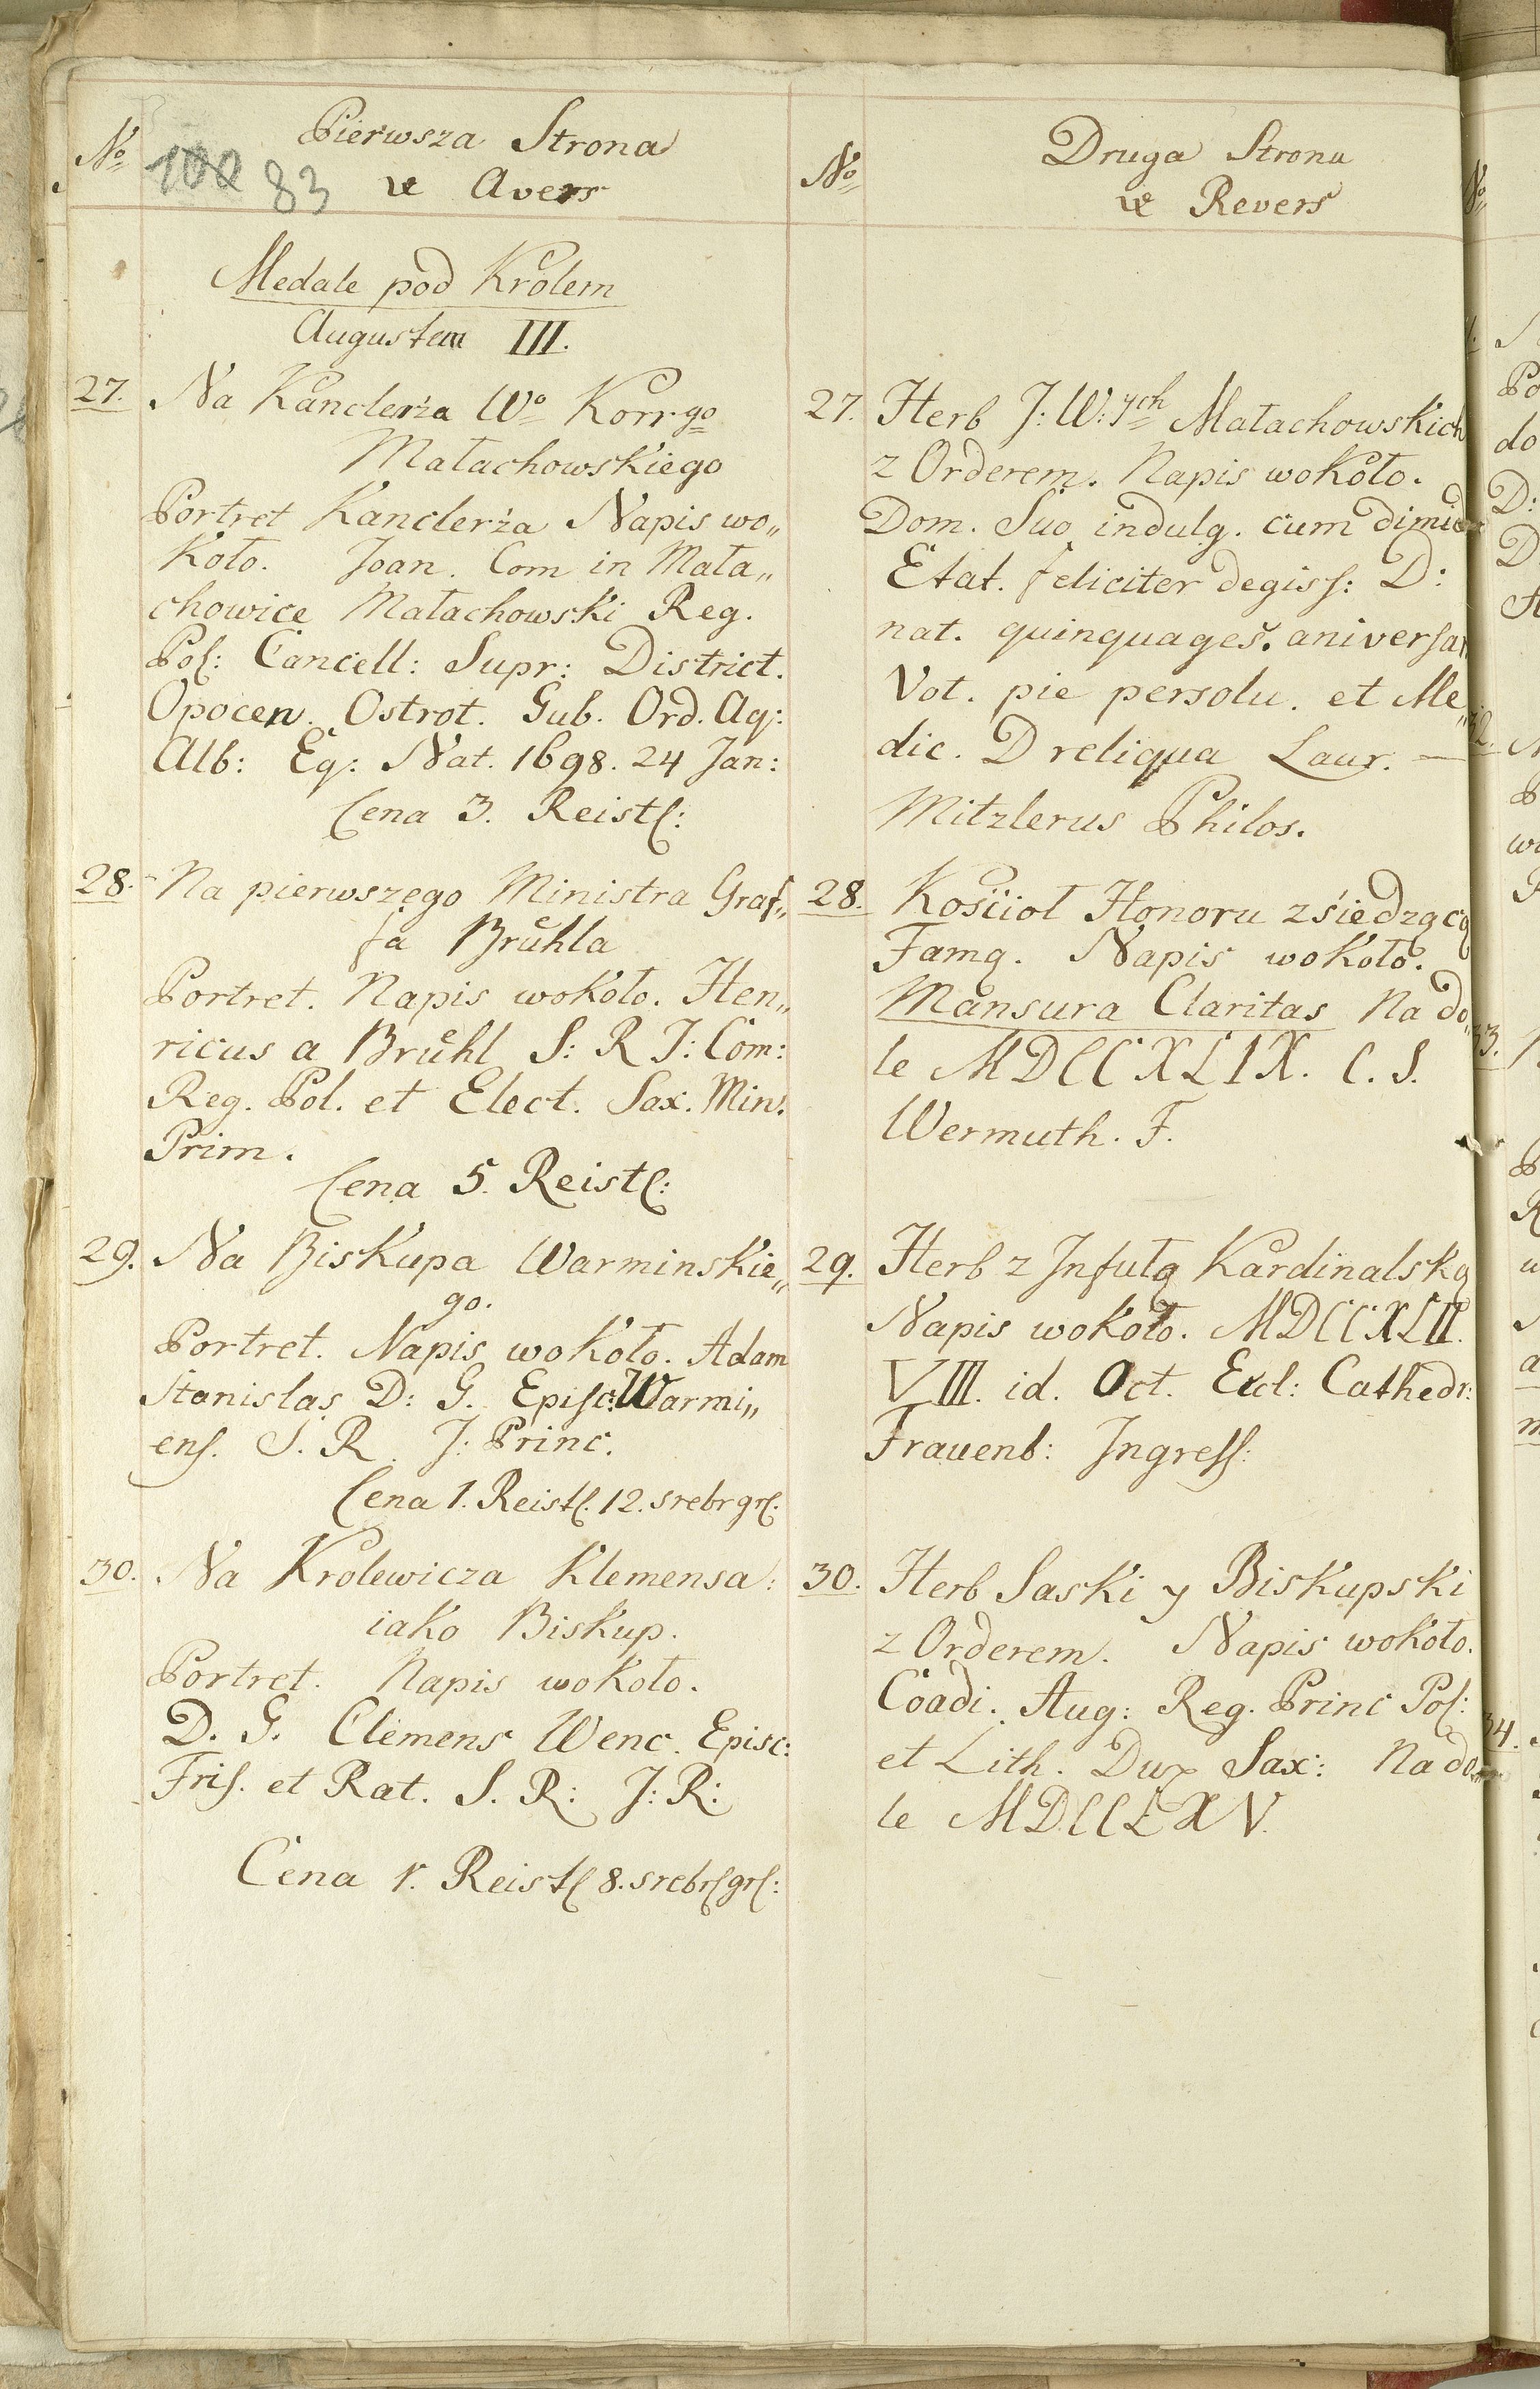 No
100 83
Pierwsza Strona
Avers
Medale pod Krolem
Augustem III.
27. Na Kanclerża Wo Korrgo
Małachowskiego
Portret Kanclerża Napis wo„
koło. Joan. Com in Mała„
chowice Małachowski Reg.
Pol: Cancell: Supr: District.
Opocen. Ostrot. Gub. Ord. Aq:
Alb: Eq: Nat. 1698. 24 Jan:
Cena 3. Reistl:
28. Na pierwszego Ministra Graf„
fa Brühla
Portret. Napis wokoło. Hen„
ricus a Brühl S: R J: Com:
Reg. Pol. et Elect. Sax. Min.
Prim.
Cena 5. Reistl:
29. Na Biskupa Warminskie„
go.
Portret. Napis wokoło. Adam
Stanislas D: G. Episc: Warmi„
ens. S. R. J: Princ.
Cena 1. Reistl. 12. srebrgrl.
30. Na Krolewicza Klemensa:
iako Biskup.
Portret. Napis wokoło.
D. G. Clemens Wenc. Episc:
Fris. et Rat. S. R: J: R:
Cena 1. Reistl 8. srebrlgrl:
No
Druga Strona
Revers
27. Herb J: W: ych Małachowskich
z Orderem. Napis wokoło.
Dom. Suo indulg. cum
Etat. feliciter degiss: D:
nat. quinquages. aniversar
Vot. pie persolu. et Me„
dic. D reliqua Laur. —
Mitzlerus Philos.
28. Kościoł Honoru z śiedzącą
Famą. Napis wokoło.
Mansura Claritas Na do„
le MDCCXLIX. C. S.
Wermuth. F.
29. Herb z Infułą Kardinalską
Napis wokoło. MDCCXLII.
VIII. id. Oct. Eccl: Cathedr:
Frauenb: Ingress:
30. Herb Saski y Biskupski
z Orderem. Napis wokoło.
Coadi. Aug: Reg. Princ Pol:
et Lith. Dux Sax: Na do„
le MDCCLXV.